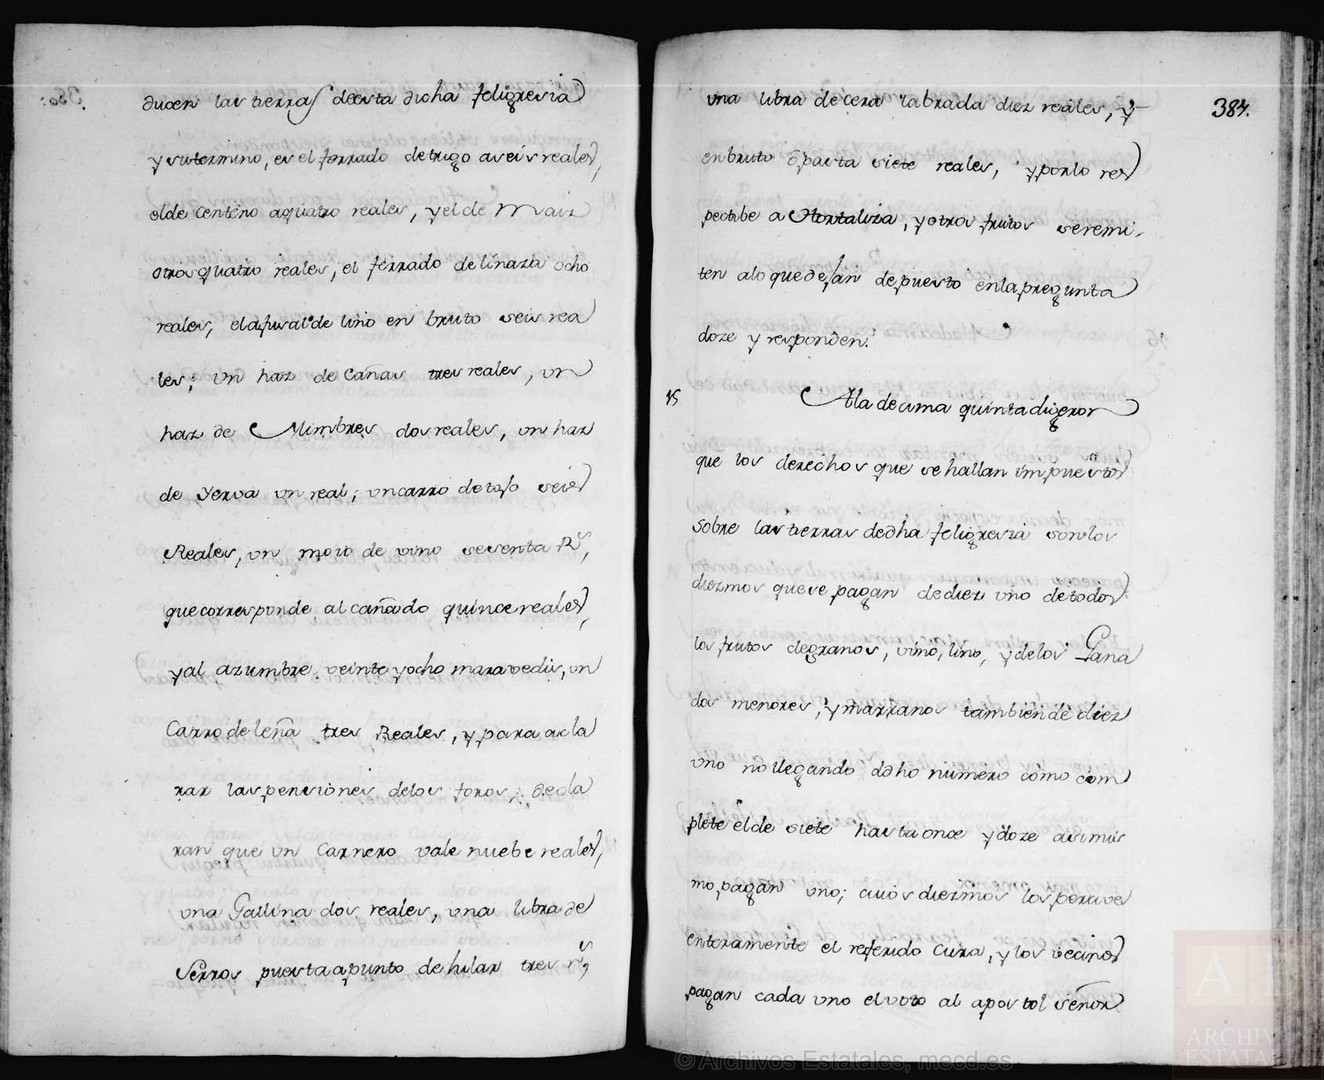 ducen las tierras deesta dicha feligresia
y sutermino, es el ferrado detrigo aseis reales,
elde Centeno aquatro reales, yel de Maiz
otros quatro reales, el ferrado de linaza ocho
reales, elafusal de lino en bruto seis rea
les; Un haz de Cañas tres reales, un
haz de Mimbres dos reales, un haz
de Yerva un real; uncarro detojo seis
Reales, un moio de vino sesenta Rs,
que corresponde al cañado quince reales,
yal azumbre veinte yocho maravedis, un
Carro de leña tres Reales, y para acla
rar las pensiones delos foros, decla
ran que un Carnero vale nuebe reales,
una Gallina dos reales, una libra de
Serros puesta apunto de hilar tres rs,
una libra de cera labrada diez reales, y
enbruto siete reales, y porlo res
pectibe a Hortaliza, yotros frutos seremi,
ten alo que dejan depuesto enla pregunta
doze y responden.
384.
15
Ala decima quinta digeron
que los derechos que se hallan impuestos
sobre las tierras dedha feligresia sonlos
diezmos que se pagan dediez uno detodos
los frutos degranos, vino, lino, y delos Gana
dos menores, y marranos tambien de diez
uno no llegando adho numero como com
plete elde siete hasta once y doze asimis
mo, pagan uno; cuios diezmos los percive
enteramente el referido Cura, y los vecinos
pagan cada uno el voto al apostol señor
© Archivos Estatales, mecd.es
ARCHIV
ESTATA